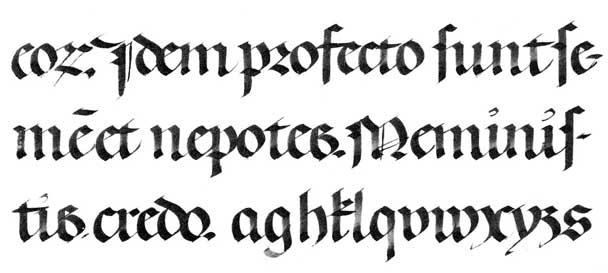 eoꝝ. Idem profecto ſunt ſe-
mēet nepotes. Meminiſ-
tis. credo. aghklqvwxyzs